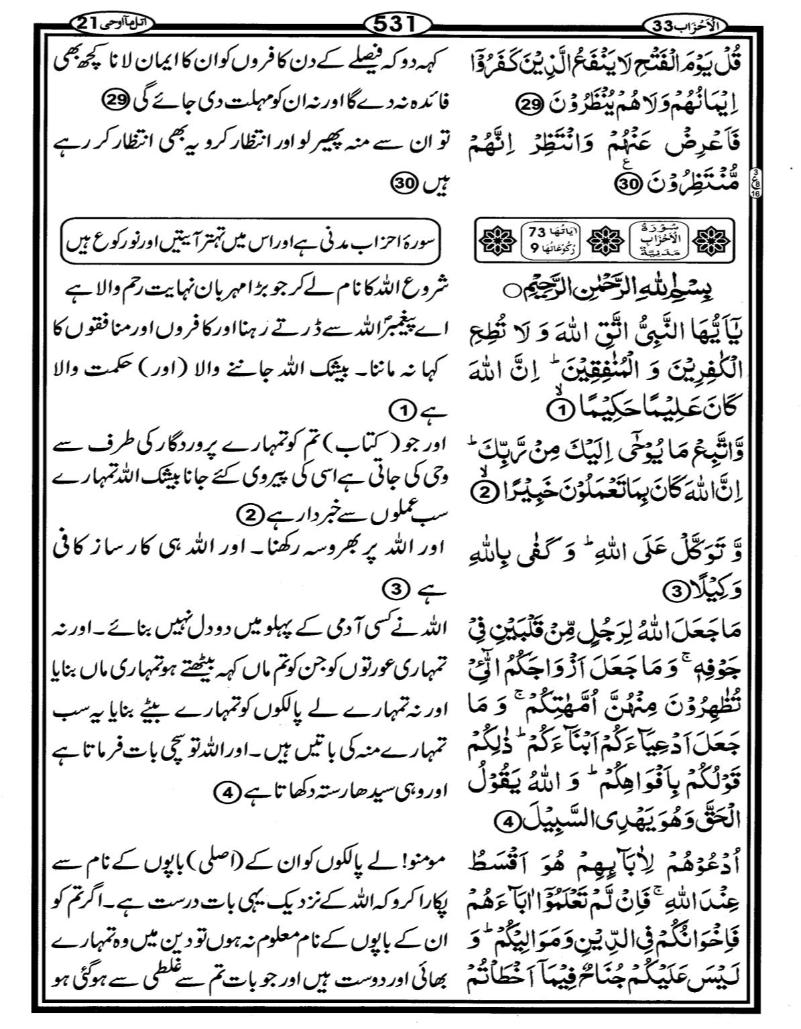 اَلْاَحْزَاب33
531
اتل مآ اوحی21
قُلْ يَوْمَ الْفَتْحِ لَا يَنْفَعُ الَّذِيْنَ كَفَرُوْٓا
اِيْمَانُهُمْ وَلَا هُمْ يُنْظَرُوْنَ 29
فَاَعْرِضْ عَنْهُمْ وَانْتَظِرْ اِنَّهُمْ
مُّنْتَظِرُوْنَ 30
3
ع
8
16
سُوْرَةُ الْاَحْزَابِ مَدَنِيَّةٌ
اٰيَاتُهَا 73
رُكُوْعَاتُهَا 9
بِسْمِ اللهِ الرَّحْمٰنِ الرَّحِيْمِ
يٰٓاَيُّهَا النَّبِيُّ اتَّقِ اللهَ وَ لَا تُطِعِ
الْكٰفِرِيْنَ وَ الْمُنٰفِقِيْنَ ؕ اِنَّ اللهَ
كَانَ عَلِيْمًا حَكِيْمًا 1
وَّاتَّبِعْ مَا يُوْحٰٓى اِلَيْكَ مِنْ رَّبِّكَ ؕ
اِنَّ اللهَ كَانَ بِمَا تَعْمَلُوْنَ خَبِيْرًا 2
وَّ تَوَكَّلْ عَلَى اللهِ ؕ وَ كَفٰى بِاللهِ
وَكِيْلًا 3
مَا جَعَلَ اللهُ لِرَجُلٍ مِّنْ قَلْبَيْنِ فِيْ
جَوْفِهٖ ۚ وَ مَا جَعَلَ اَزْوَاجَكُمُ الّٰٓـِٔيْ
تُظٰهِرُوْنَ مِنْهُنَّ اُمَّهٰتِكُمْ ۚ وَ مَا
جَعَلَ اَدْعِيَآءَكُمْ اَبْنَآءَكُمْ ؕ ذٰلِكُمْ
قَوْلُكُمْ بِاَفْوَاهِكُمْ ؕ وَ اللهُ يَقُوْلُ
الْحَقَّ وَهُوَ يَهْدِى السَّبِيْلَ 4
اُدْعُوْهُمْ لِاٰبَآئِهِمْ هُوَ اَقْسَطُ
عِنْدَ اللهِ ۚ فَاِنْ لَّمْ تَعْلَمُوْٓا اٰبَآءَهُمْ
فَاِخْوَانُكُمْ فِى الدِّيْنِ وَمَوَالِيْكُمْ ؕ وَ
لَيْسَ عَلَيْكُمْ جُنَاحٌ فِيْمَآ اَخْطَاْتُمْ
کہہ دو کہ فیصلے کے دن کافروں کو ان کا ایمان لانا کچھ بھی
فائدہ نہ دے گا اور نہ ان کو مہلت دی جائے گی 29
تو ان سے منہ پھیر لو اور انتظار کرو یہ بھی انتظار کر رہے
ہیں 30
سورۂ احزاب مدنی ہے اور اس میں تہتر آیتیں اور نو رکوع ہیں
شروع اللہ کا نام لے کر جو بڑا مہربان نہایت رحم والا ہے
اے پیغمبرؐ اللہ سے ڈرتے رہنا اور کافروں اور منافقوں کا
کہا نہ ماننا۔ بیشک اللہ جاننے والا (اور) حکمت والا
ہے 1
اور جو (کتاب) تم کو تمہارے پروردگار کی طرف سے
وحی کی جاتی ہے اسی کی پیروی کئے جانا بیشک اللہ تمہارے
سب عملوں سے خبردار ہے 2
اور اللہ پر بھروسہ رکھنا۔ اور اللہ ہی کارساز کافی
ہے 3
اللہ نے کسی آدمی کے پہلو میں دو دل نہیں بنائے۔ اور نہ
تمہاری عورتوں کو جن کو تم ماں کہہ بیٹھتے ہو تمہاری ماں بنایا
اور نہ تمہارے لے پالکوں کو تمہارے بیٹے بنایا یہ سب
تمہارے منہ کی باتیں ہیں۔ اور اللہ تو سچی بات فرماتا ہے
اور وہی سیدھا رستہ دکھاتا ہے 4
مومنو! لے پالکوں کو ان کے (اصلی) باپوں کے نام سے
پکارا کرو کہ اللہ کے نزدیک یہی بات درست ہے۔ اگر تم کو
ان کے باپوں کے نام معلوم نہ ہوں تو دین میں وہ تمہارے
بھائی اور دوست ہیں اور جو بات تم سے غلطی سے ہو گئی ہو